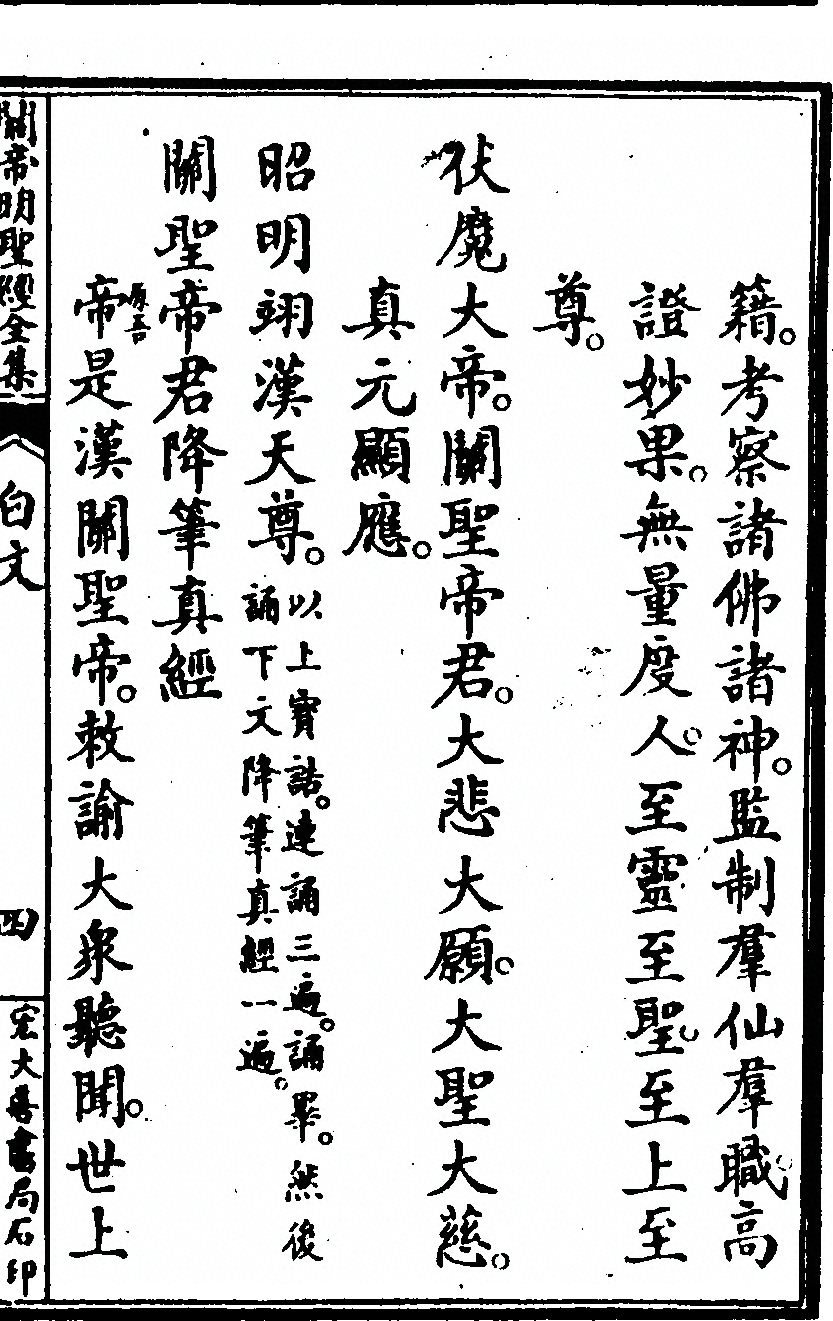 籍。考察諸佛諸神。監制羣仙羣職。高
證妙果。無量度人。至靈至聖。至上至
尊。
伏魔大帝。關聖帝君。大悲大願。大聖大慈。
真元顯應。
昭明翊漢天尊。
以上寶誥。連誦三遍。誦畢。然後
誦下文降筆真經一遍。
關聖帝君降筆真經
帝是漢關聖帝。敕諭大衆聽聞。世上
原吾
關帝明聖經全集
白文
四
宏大善書局石印